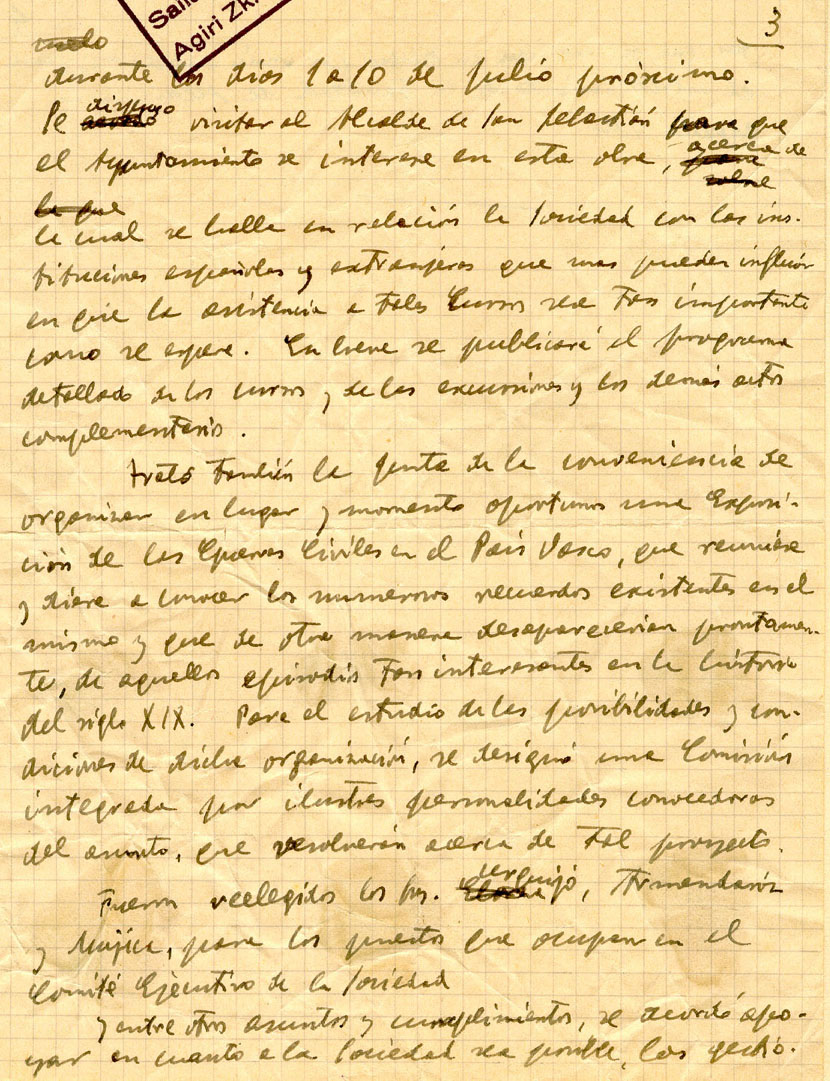 Agiri Zk.
3
durante los días 1 a 10 de julio próximo.
Se dispuso visitar al Alcalde de San Sebastián para que
el Ayuntamiento se interese en esta obra, acerca de
la que
la cual se halla en relación la Sociedad con las ins-
tituciones españolas y extranjeras que mas pueden influir
en que la asistencia a tales Cursos sea tan importante
como se espera. En breve se publicará el programa
detallado de los cursos y de las excursiones y los demás actos
complementarios.
Trató también la Junta de la conveniencia de
organizar en lugar y momento oportunos una Exposi-
ción de las Guerras Civiles en el País Vasco, que reuniese
y diese a conocer los numerosos recuerdos existentes en el
mismo y que de otra manera desaparecerían prontamen-
te, de aquellos episodios tan interesantes en la historia
del siglo XIX. Para el estudio de las posibilidades y con-
diciones de dicha organización, se designó una Comisión
integrada por ilustres personalidades conocedoras
del asunto, que resolverán acerca de tal proyecto.
Fueron reelegidos los Sres. Urquijo, Armendariz
y Mujica, para los puestos que ocupan en el
Comité Ejecutivo de la Sociedad
y entre otros asuntos y cumplimientos, se acordó apo-
yar en cuanto a la Sociedad sea posible, las gestio-